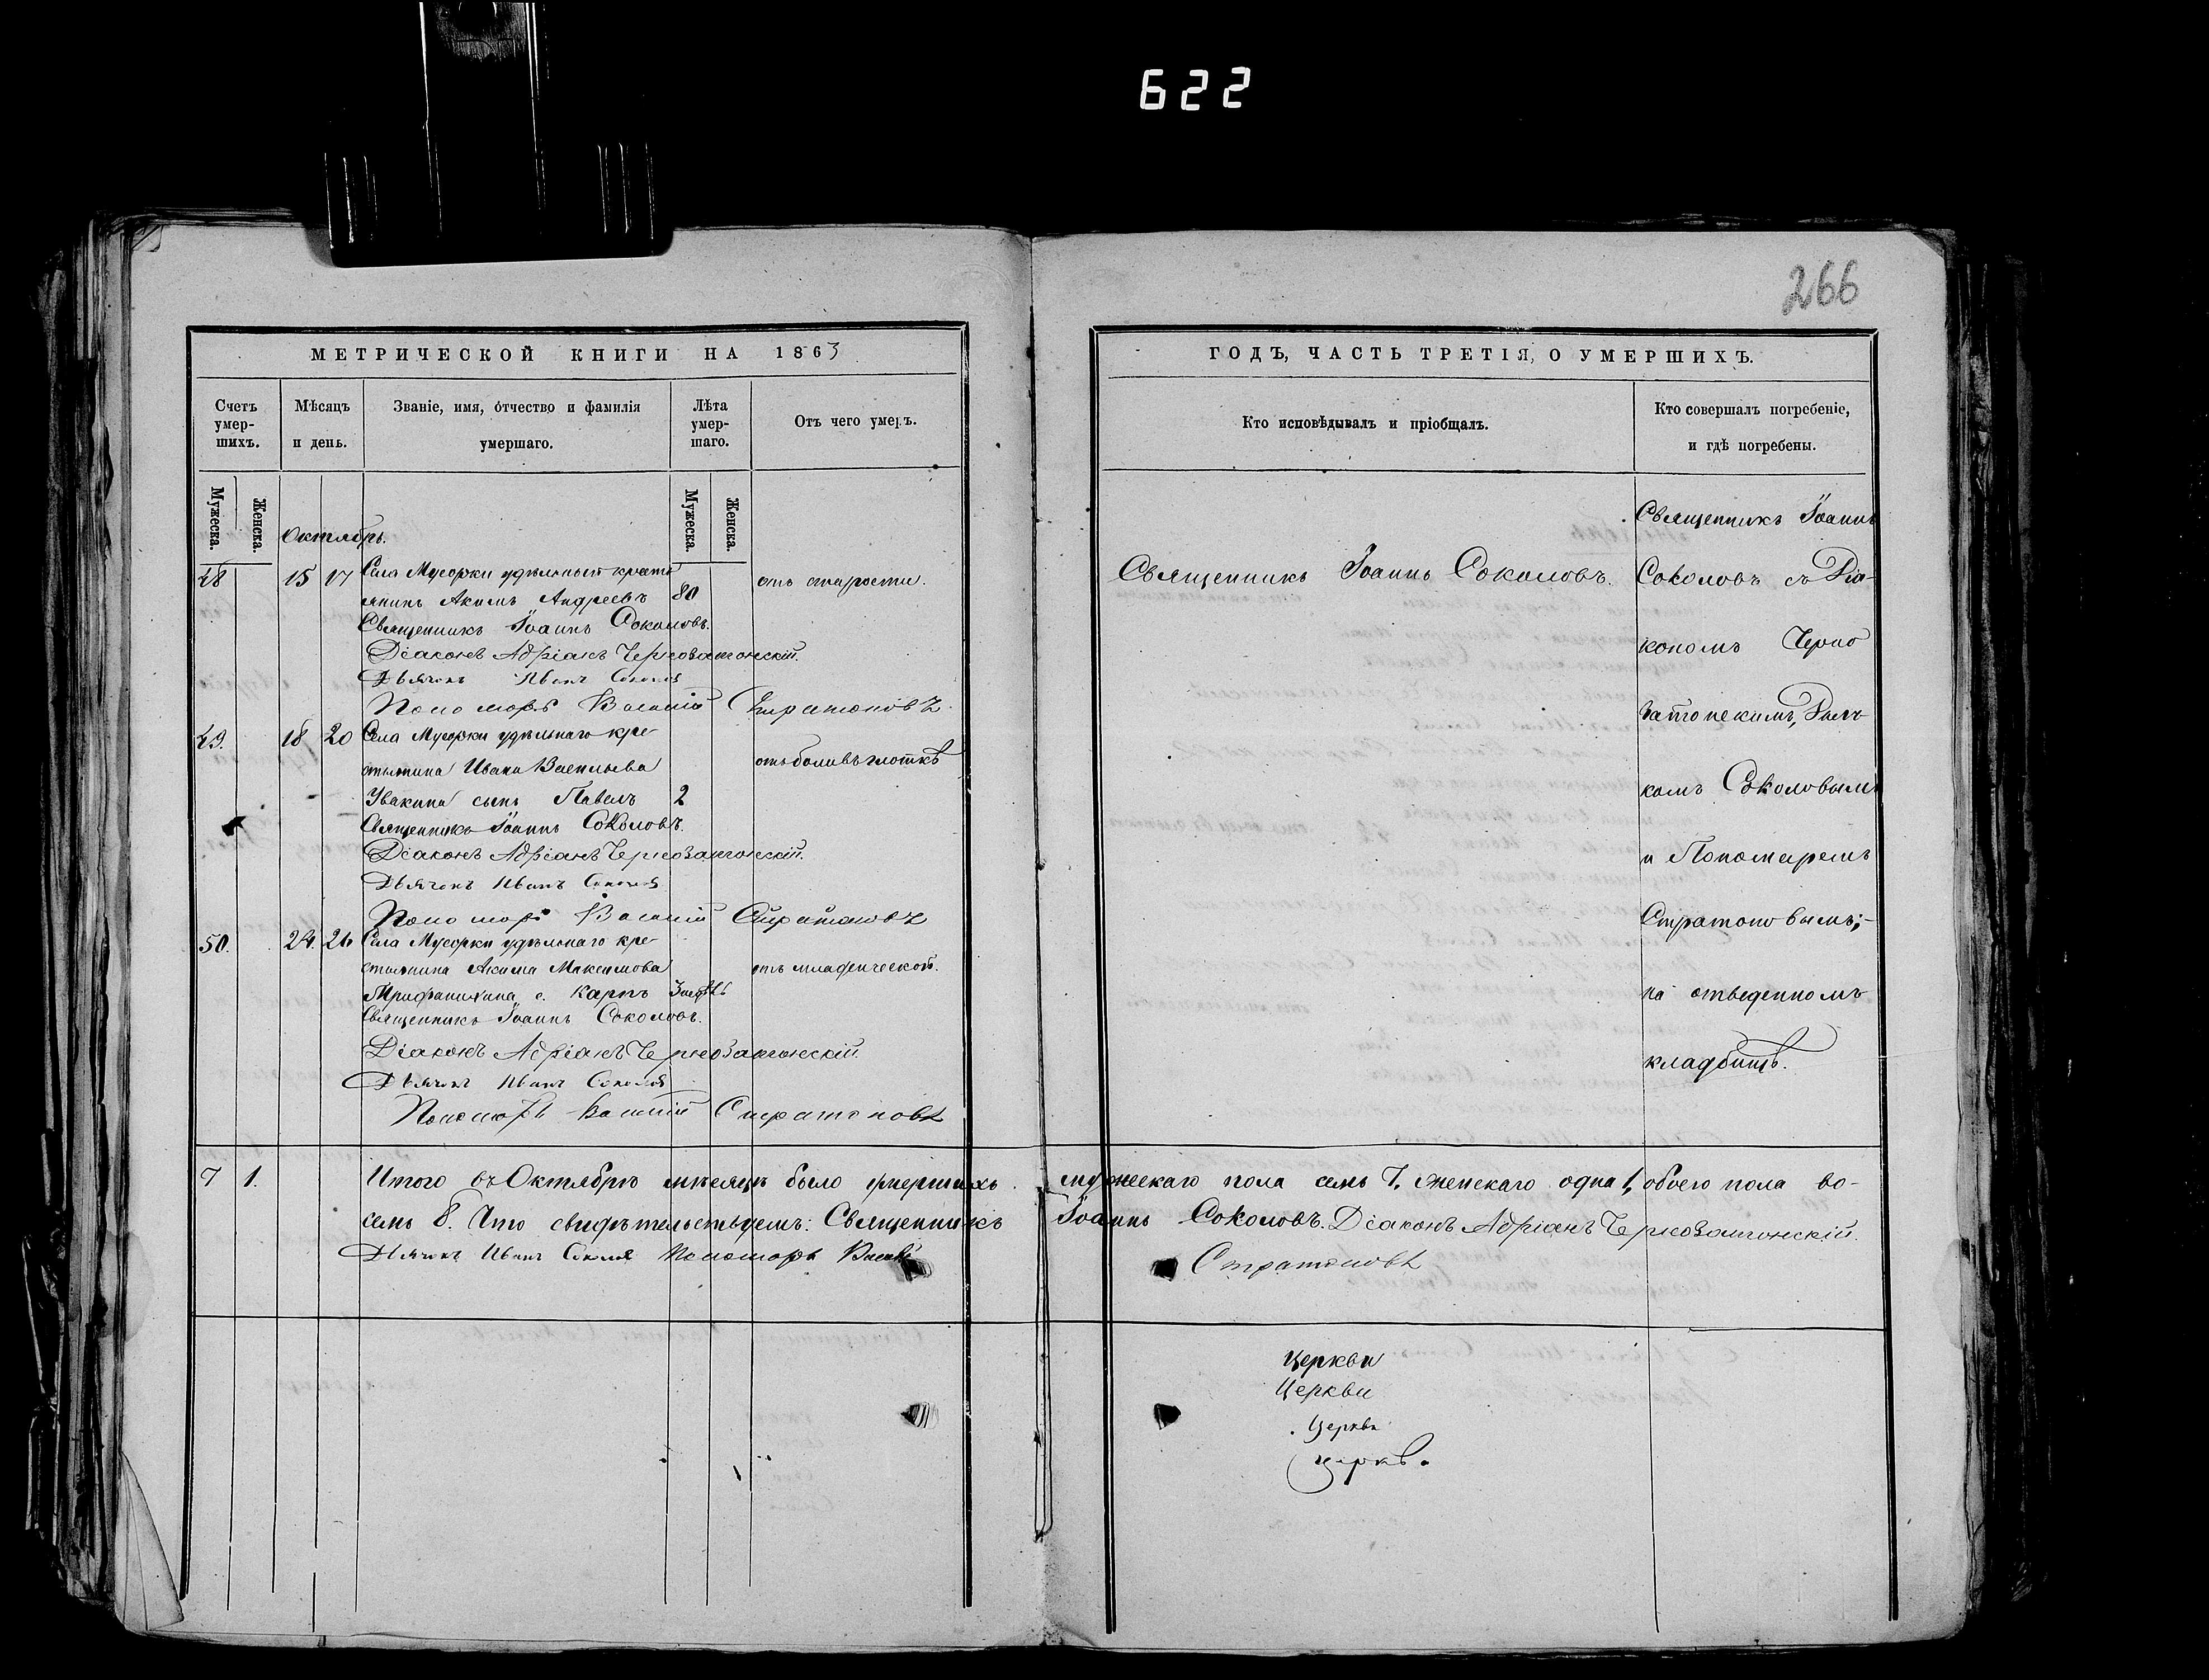 622
266
МЕТРИЧЕСКОЙ КНИГИ НА 1863
Счетъ умер-шихъ.
Мѣсяцъ и день.
Званіе, имя, отчество и фамилія умершаго.
Лѣта умер-шаго.
Отъ чего умеръ.
Мужеска.
Женска.
Мужеска.
Женска.
Октябрь.
48 15 17 Села Мусорки удѣльный кресть
янинъ Акимъ Андреевъ 80 отъ старости.
Священникъ Іоаннъ Соколовъ.
Діаконъ Адріанъ Чернозатонскій.
Дьячокъ Иванъ Соколовъ
Пономорь Василій Стратоновъ
49. 18 20 Села Мусорки удѣльнаго кре-
стьянина Ивана Васильева отъ боли въ глоткѣ
Увакина сынъ Павелъ 2
Священникъ Іоаннъ Соколовъ.
Діаконъ Адріанъ Чернозатонскій.
Дьячокъ Иванъ Соколовъ
Пономорь Василій Стратоновъ
50. 24. 26 Села Мусорки удѣльнаго кре-
стьянина Акима Максимова отъ младенческой.
с. Карпъ
Священникъ Іоаннъ Соколовъ.
Діаконъ Адріанъ Чернозатонскій
Дьячокъ Иванъ Соколовъ
Пономорь Василій Стратоновъ
7 1. Итого въ Октябрѣ мѣсяцѣ было умершихъ
семь 8. Что свидѣтельствуемъ: Священникъ
Дьячокъ Иванъ Соколовъ Пономорь Василій
ГОДЪ, ЧАСТЬ ТРЕТІЯ, О УМЕРШИХЪ.
Кто исповѣдывалъ и пріобщалъ.
Кто совершалъ погребеніе, и гдѣ погребены.
Священникъ Іоаннъ Соколовъ.
Священникъ Іоаннъ
Соколовъ съ Діа-
кономъ Черно
затонскимъ, Дьяч-
комъ Соколовымъ
и Пономаремъ
Стратоновымъ;-
на отведенномъ
кладбищѣ.
мужескаго пола семь 7, женскаго одна 1, обоего пола во-
Іоаннъ Соколовъ. Діаконъ Адріанъ Чернозатонскій.
Стратоновъ
Церкви
Церкви
Церкви